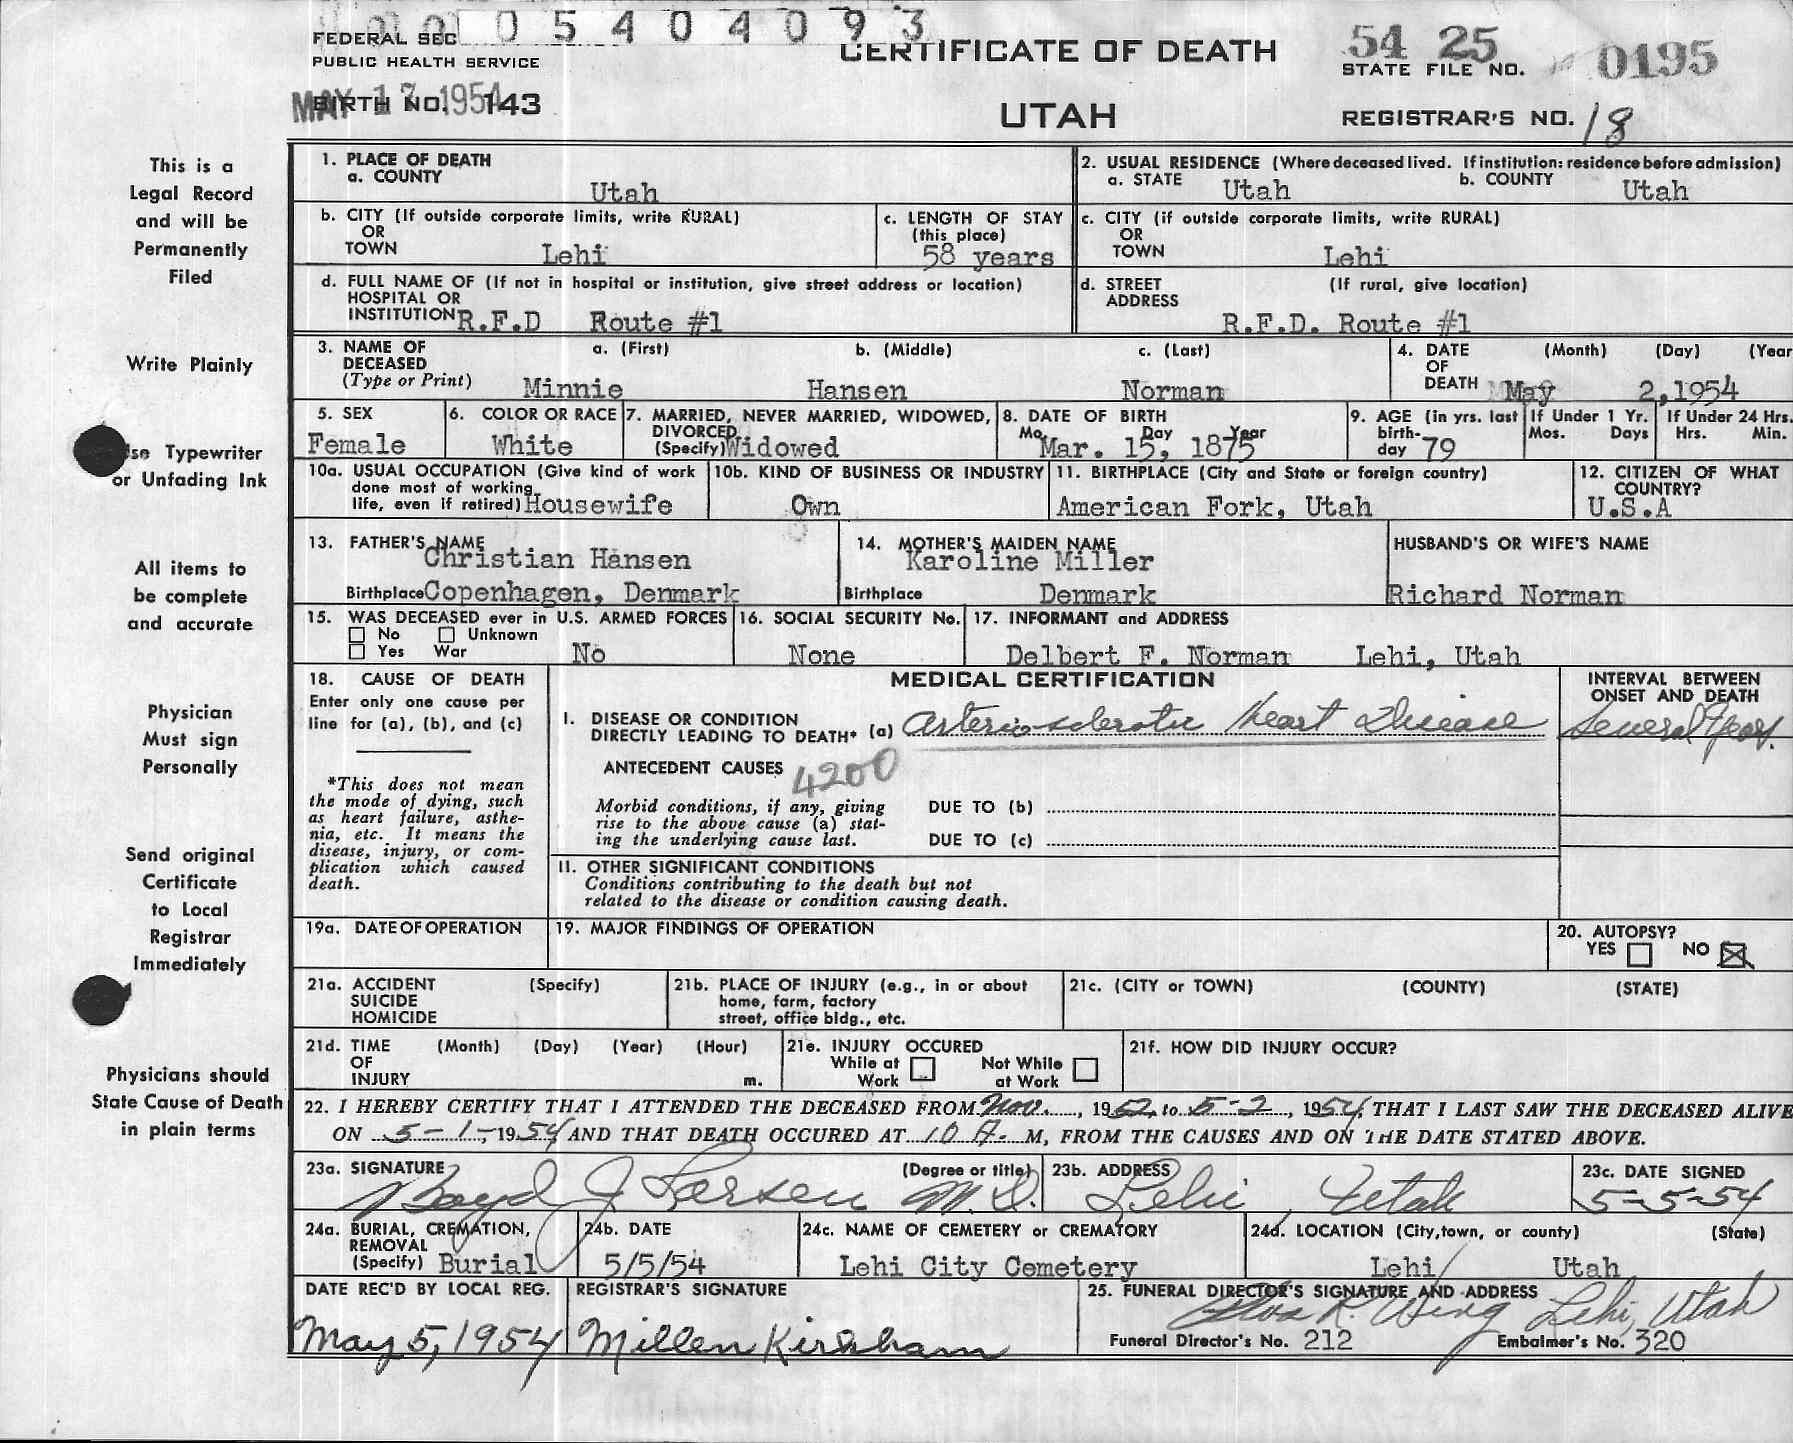 0 5 4 0 4 0 9 3
FEDERAL SEC
PUBLIC HEALTH SERVICE
CERTIFICATE OF DEATH
54 25
STATE FILE NO. 0195
MAY 17 1954
BIRTH NO. 143
UTAH
REGISTRAR'S NO. 18
This is a
Legal Record
and will be
Permanently
Filed
Write Plainly
se Typewriter
or Unfading Ink
All items to
be complete
and accurate
Physician
Must sign
Personally
Send original
Certificate
to Local
Registrar
Immediately
Physicians should
State Cause of Death
in plain terms
1. PLACE OF DEATH
a. COUNTY Utah
2. USUAL RESIDENCE (Where deceased lived. If institution: residence before admission)
a. STATE Utah b. COUNTY Utah
b. CITY (If outside corporate limits, write RURAL)
OR
TOWN Lehi
c. LENGTH OF STAY
(this place)
58 years
c. CITY (if outside corporate limits, write RURAL)
OR
TOWN Lehi
d. FULL NAME OF (If not in hospital or institution, give street address or location)
HOSPITAL OR
INSTITUTION R.F.D Route #1
d. STREET (If rural, give location)
ADDRESS
R.F.D. Route #1
3. NAME OF a. (First) b. (Middle) c. (Last)
DECEASED
(Type or Print) Minnie Hansen Norman
4. DATE (Month) (Day) (Year
OF
DEATH May 2,1954
5. SEX
Female
6. COLOR OR RACE
White
7. MARRIED, NEVER MARRIED, WIDOWED,
DIVORCED
(Specify) Widowed
8. DATE OF BIRTH
Mo. Day Year
Mar. 15, 1875
9. AGE (in yrs. last
birth-
day 79
If Under 1 Yr.
Mos. Days
If Under 24 Hrs.
Hrs. Min.
10a. USUAL OCCUPATION (Give kind of work
done most of working
life, even if retired) Housewife
10b. KIND OF BUSINESS OR INDUSTRY
Own
11. BIRTHPLACE (City and State or foreign country)
American Fork, Utah
12. CITIZEN OF WHAT
COUNTRY?
U.S.A
13. FATHER'S NAME
Christian Hansen
Birthplace Copenhagen, Denmark
14. MOTHER'S MAIDEN NAME
Karoline Miller
Birthplace Denmark
HUSBAND'S OR WIFE'S NAME
Richard Norman
15. WAS DECEASED ever in U.S. ARMED FORCES
No Unknown
Yes War No
16. SOCIAL SECURITY No.
None
17. INFORMANT and ADDRESS
Delbert F. Norman Lehi, Utah
18. CAUSE OF DEATH
Enter only one cause per
line for (a), (b), and (c)
*This does not mean
the mode of dying, such
as heart failure, asthe-
nia, etc. It means the
disease, injury, or com-
plication which caused
death.
MEDICAL CERTIFICATION
INTERVAL BETWEEN
ONSET AND DEATH
I. DISEASE OR CONDITION
DIRECTLY LEADING TO DEATH* (a) Arteriosclerotic Heart Disease
Several Years.
ANTECEDENT CAUSES 4200
Morbid conditions, if any, giving
rise to the above cause (a) stat-
ing the underlying cause last.
DUE TO (b)
DUE TO (c)
II. OTHER SIGNIFICANT CONDITIONS
Conditions contributing to the death but not
related to the disease or condition causing death.
19a. DATE OF OPERATION
19. MAJOR FINDINGS OF OPERATION
20. AUTOPSY?
YES NO
21a. ACCIDENT (Specify)
SUICIDE
HOMICIDE
21b. PLACE OF INJURY (e.g., in or about
home, farm, factory
street, office bldg., etc.
21c. (CITY or TOWN) (COUNTY) (STATE)
21d. TIME (Month) (Day) (Year) (Hour)
OF
INJURY m.
21e. INJURY OCCURED
While at Not While
Work at Work
21f. HOW DID INJURY OCCUR?
22. I HEREBY CERTIFY THAT I ATTENDED THE DECEASED FROM Nov., 1952, to 5-2, 1954, THAT I LAST SAW THE DECEASED ALIVE
ON 5-1-, 1954 AND THAT DEATH OCCURED AT 10 A. M, FROM THE CAUSES AND ON THE DATE STATED ABOVE.
23a. SIGNATURE (Degree or title)
Boyd J Larsen M.D.
23b. ADDRESS
Lehi, Utah
23c. DATE SIGNED
5-5-54
24a. BURIAL, CREMATION,
REMOVAL
(Specify) Burial
24b. DATE
5/5/54
24c. NAME OF CEMETERY or CREMATORY
Lehi City Cemetery
24d. LOCATION (City, town, or county) (State)
Lehi Utah
DATE REC'D BY LOCAL REG.
May 5, 1954
REGISTRAR'S SIGNATURE
Millen Kirkham
25. FUNERAL DIRECTOR'S SIGNATURE AND ADDRESS
R. Wing Lehi, Utah
Funeral Director's No. 212 Embalmer's No. 320